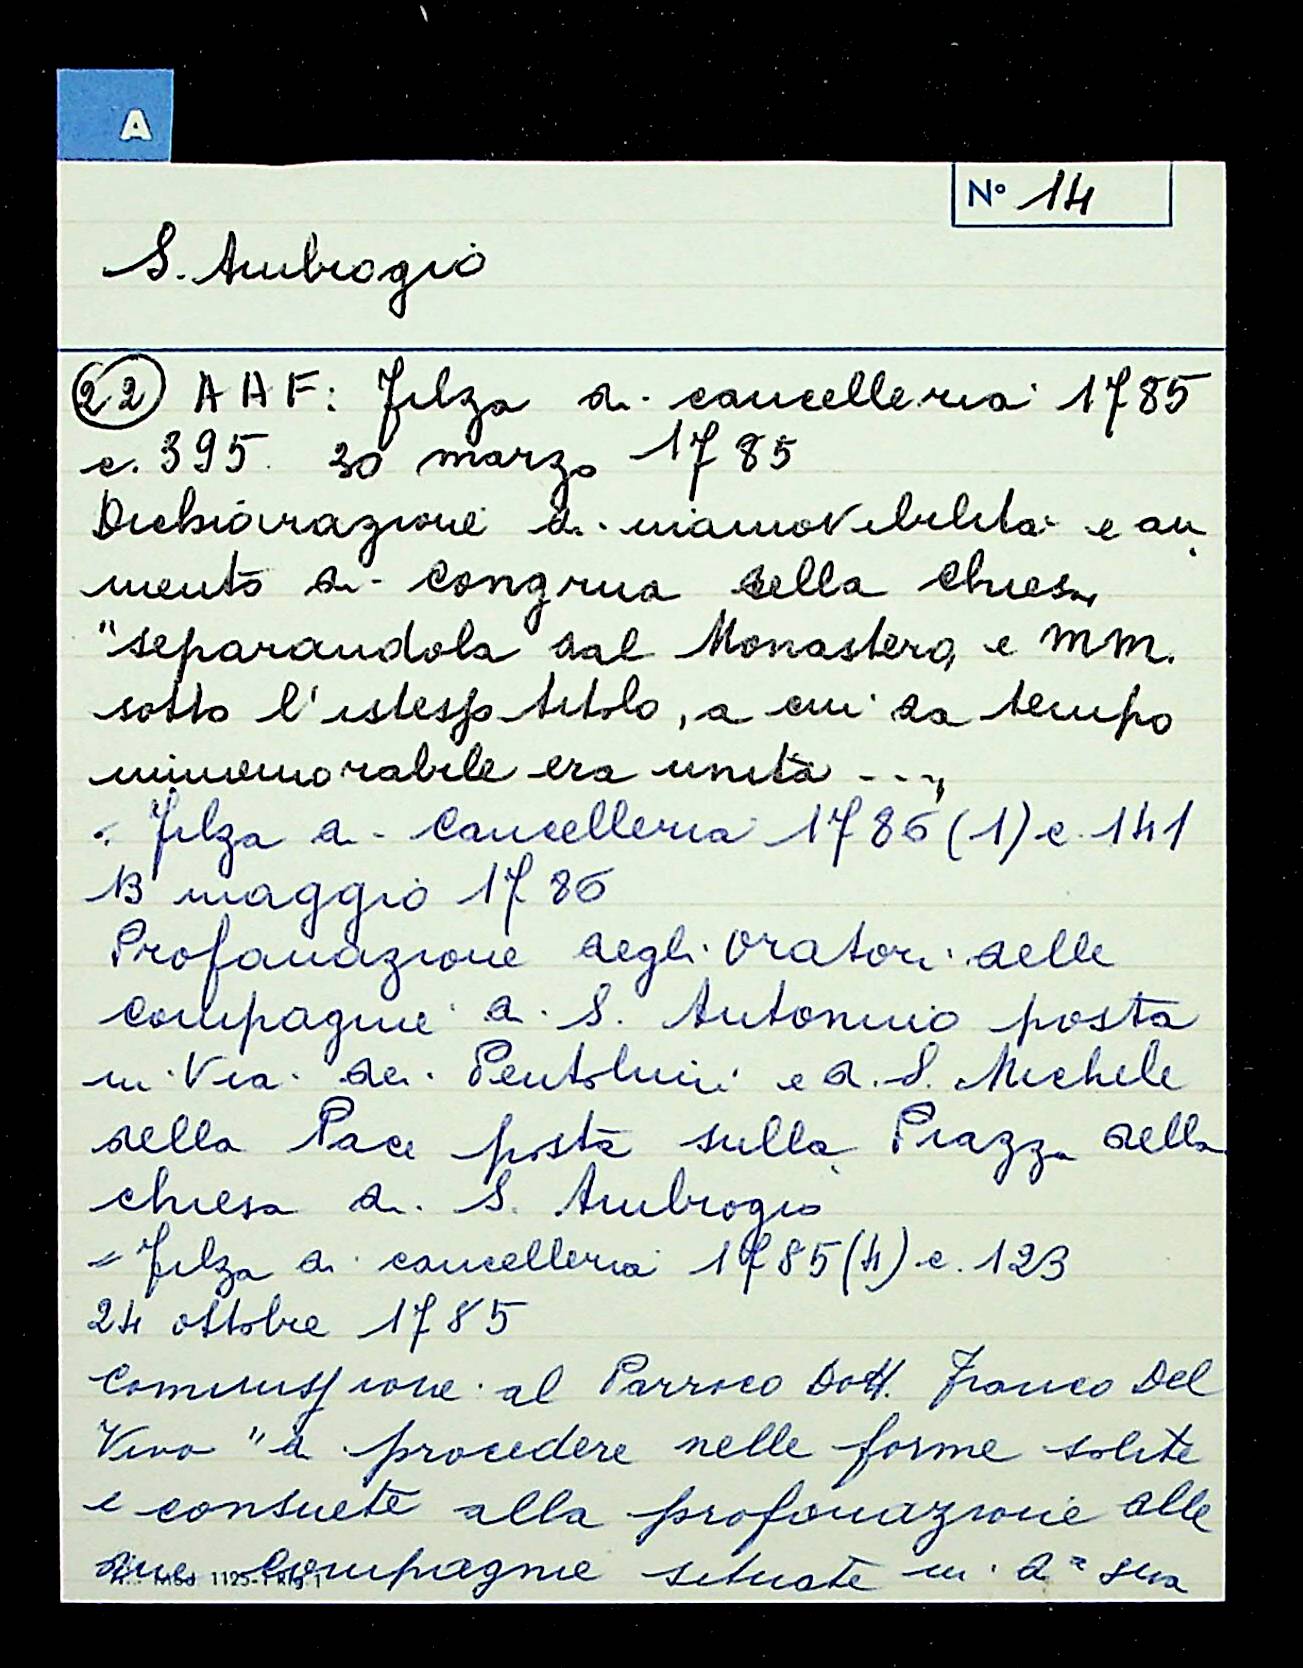 A
N° 14
S. Ambrogio
22 AAF: Filza di cancelleria 1785
c. 395. 30 marzo 1785
Dichiarazione di inamovibilità e au
mento di congrua della chiesa
"separandola dal Monastero, e MM.
sotto l'istesso titolo, a cui da tempo
immemorabile era unita ...,
= Filza di Cancelleria 1786 (1) c. 141
13 maggio 1786
Profanazione degli Oratori delle
compagnie di S. Antonino posta
in Via dei Pentolini e di S. Michele
della Pace posta sulla Piazza della
chiesa di S. Ambrogio
= Filza di cancelleria 1785 (4) c. 123
24 ottobre 1785
Commissione al Parroco Dott. Franco Del
Vivo "a procedere nelle forme solite
e consuete alla profanazione alle
due Compagnie situate in da sua
Mod 1125-1 Rig 1